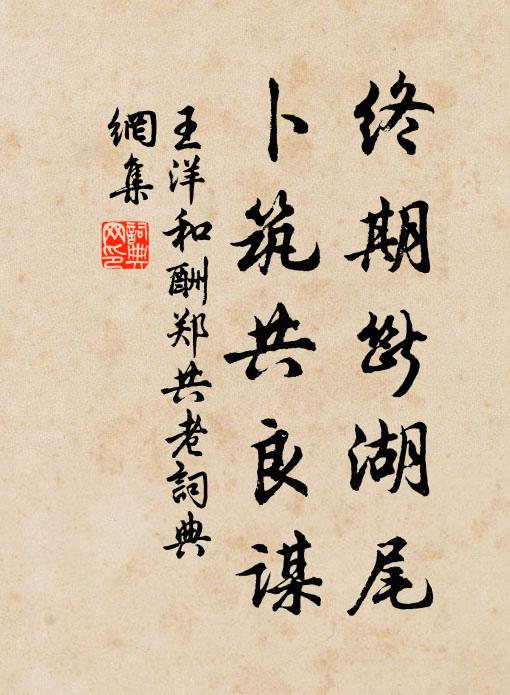 終期断湖尾
卜筑共良謀
王洋和酬郑共老詞典
網集
詞典
网印